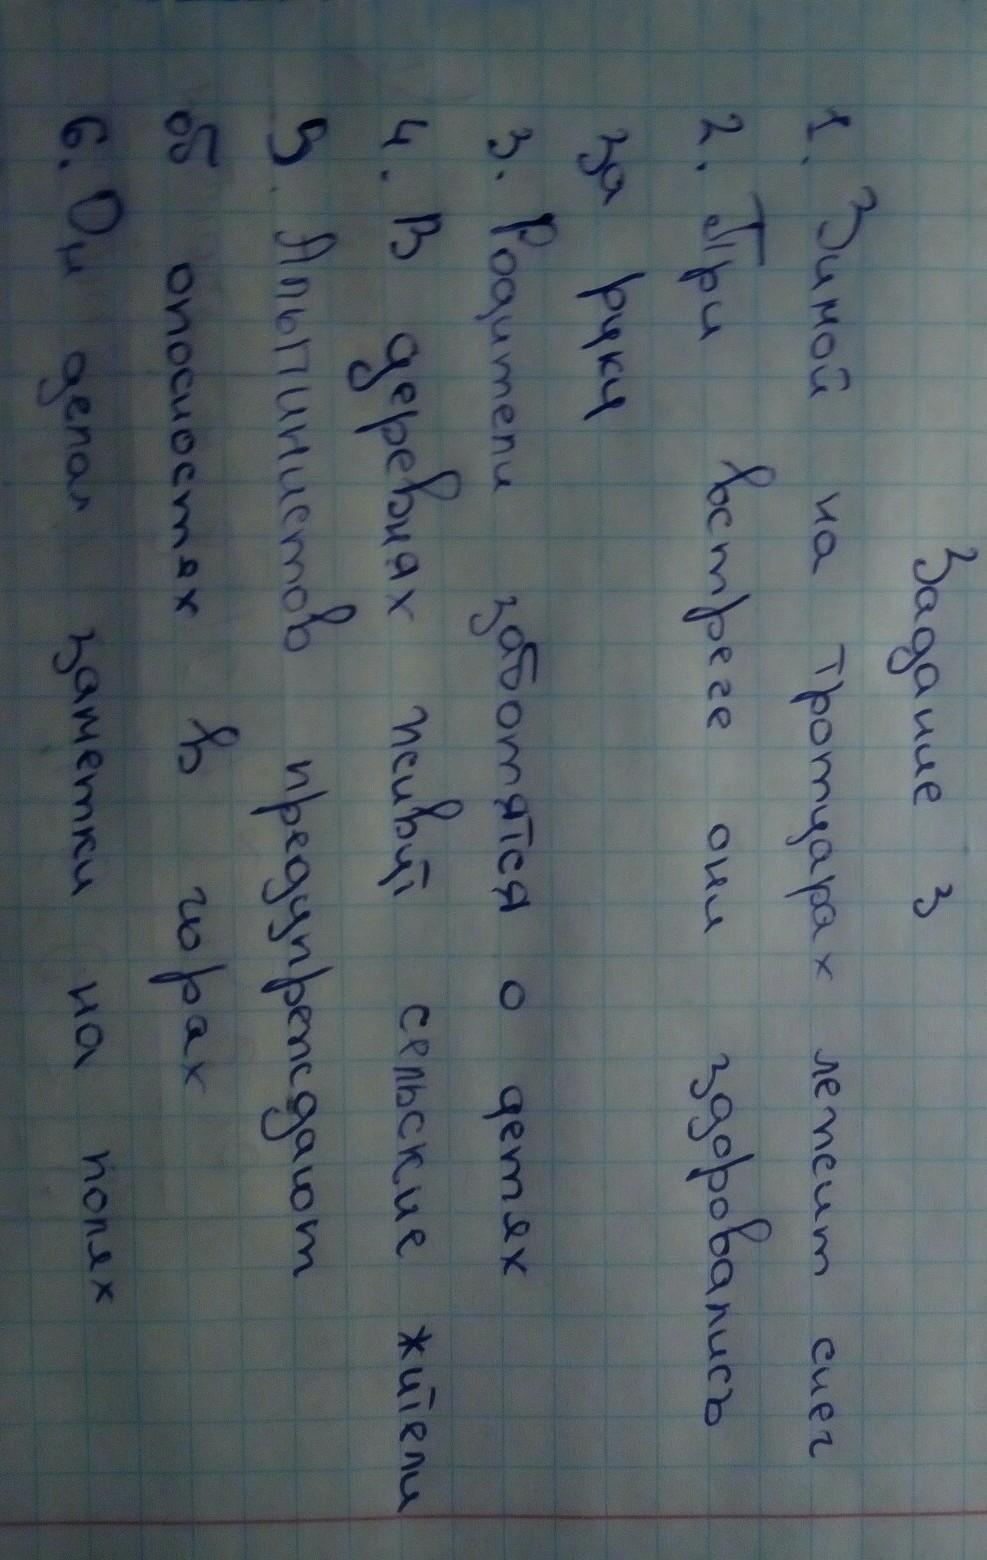 Задание 3
1. Зимой на тротуарах лежит снег
2. При встрече они здоровались
за руку
3. Родители заботятся о детях
4. В деревнях живут сельские жители
5. Альпинистов предупреждают
об опосностях в горах
6. Он делал заметки на полях